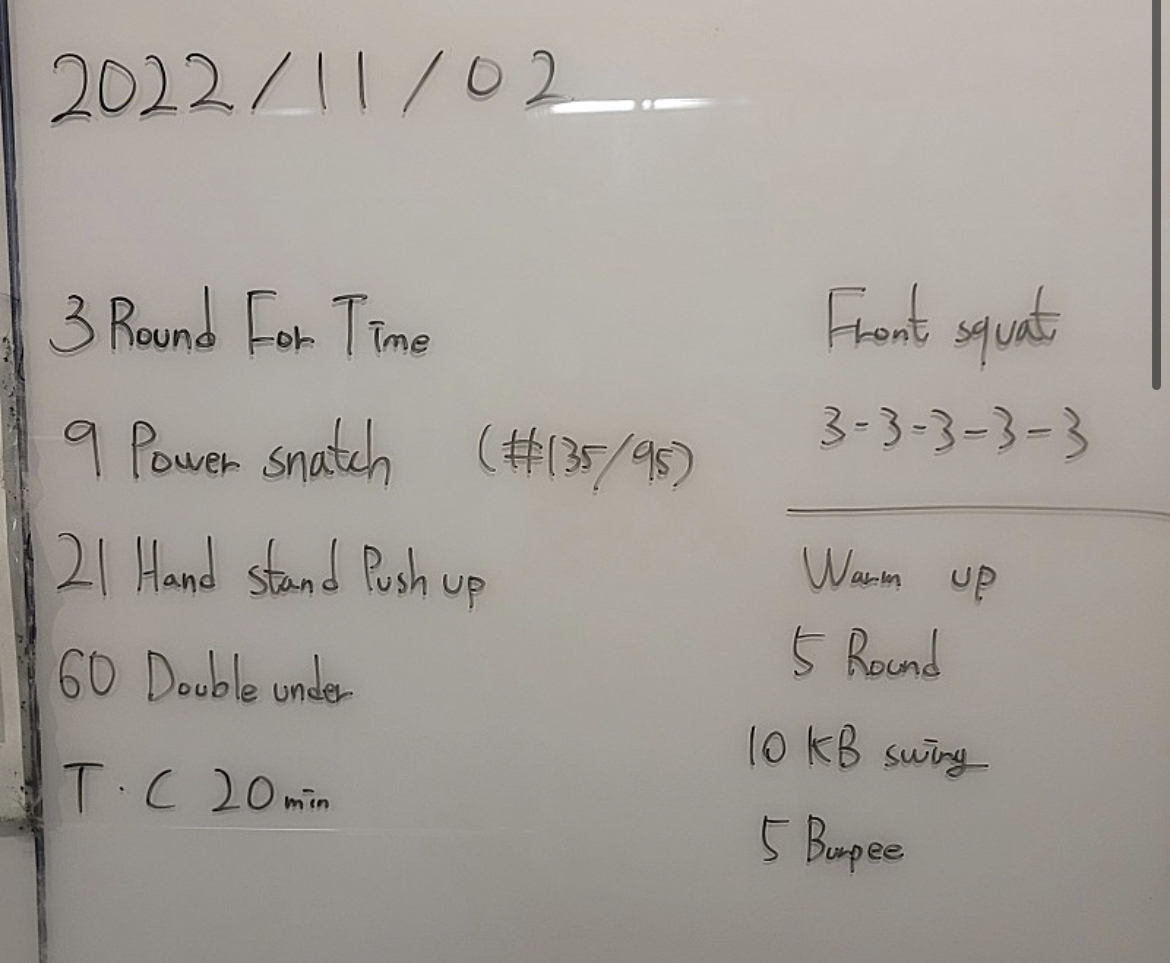 2022/11/02
3 Round For Time
9 Power snatch (#135/95)
21 Hand stand Push up
60 Double under
T.C 20min
Front squat
3-3-3-3-3
Warm up
5 Round
10 KB swing
5 Burpee